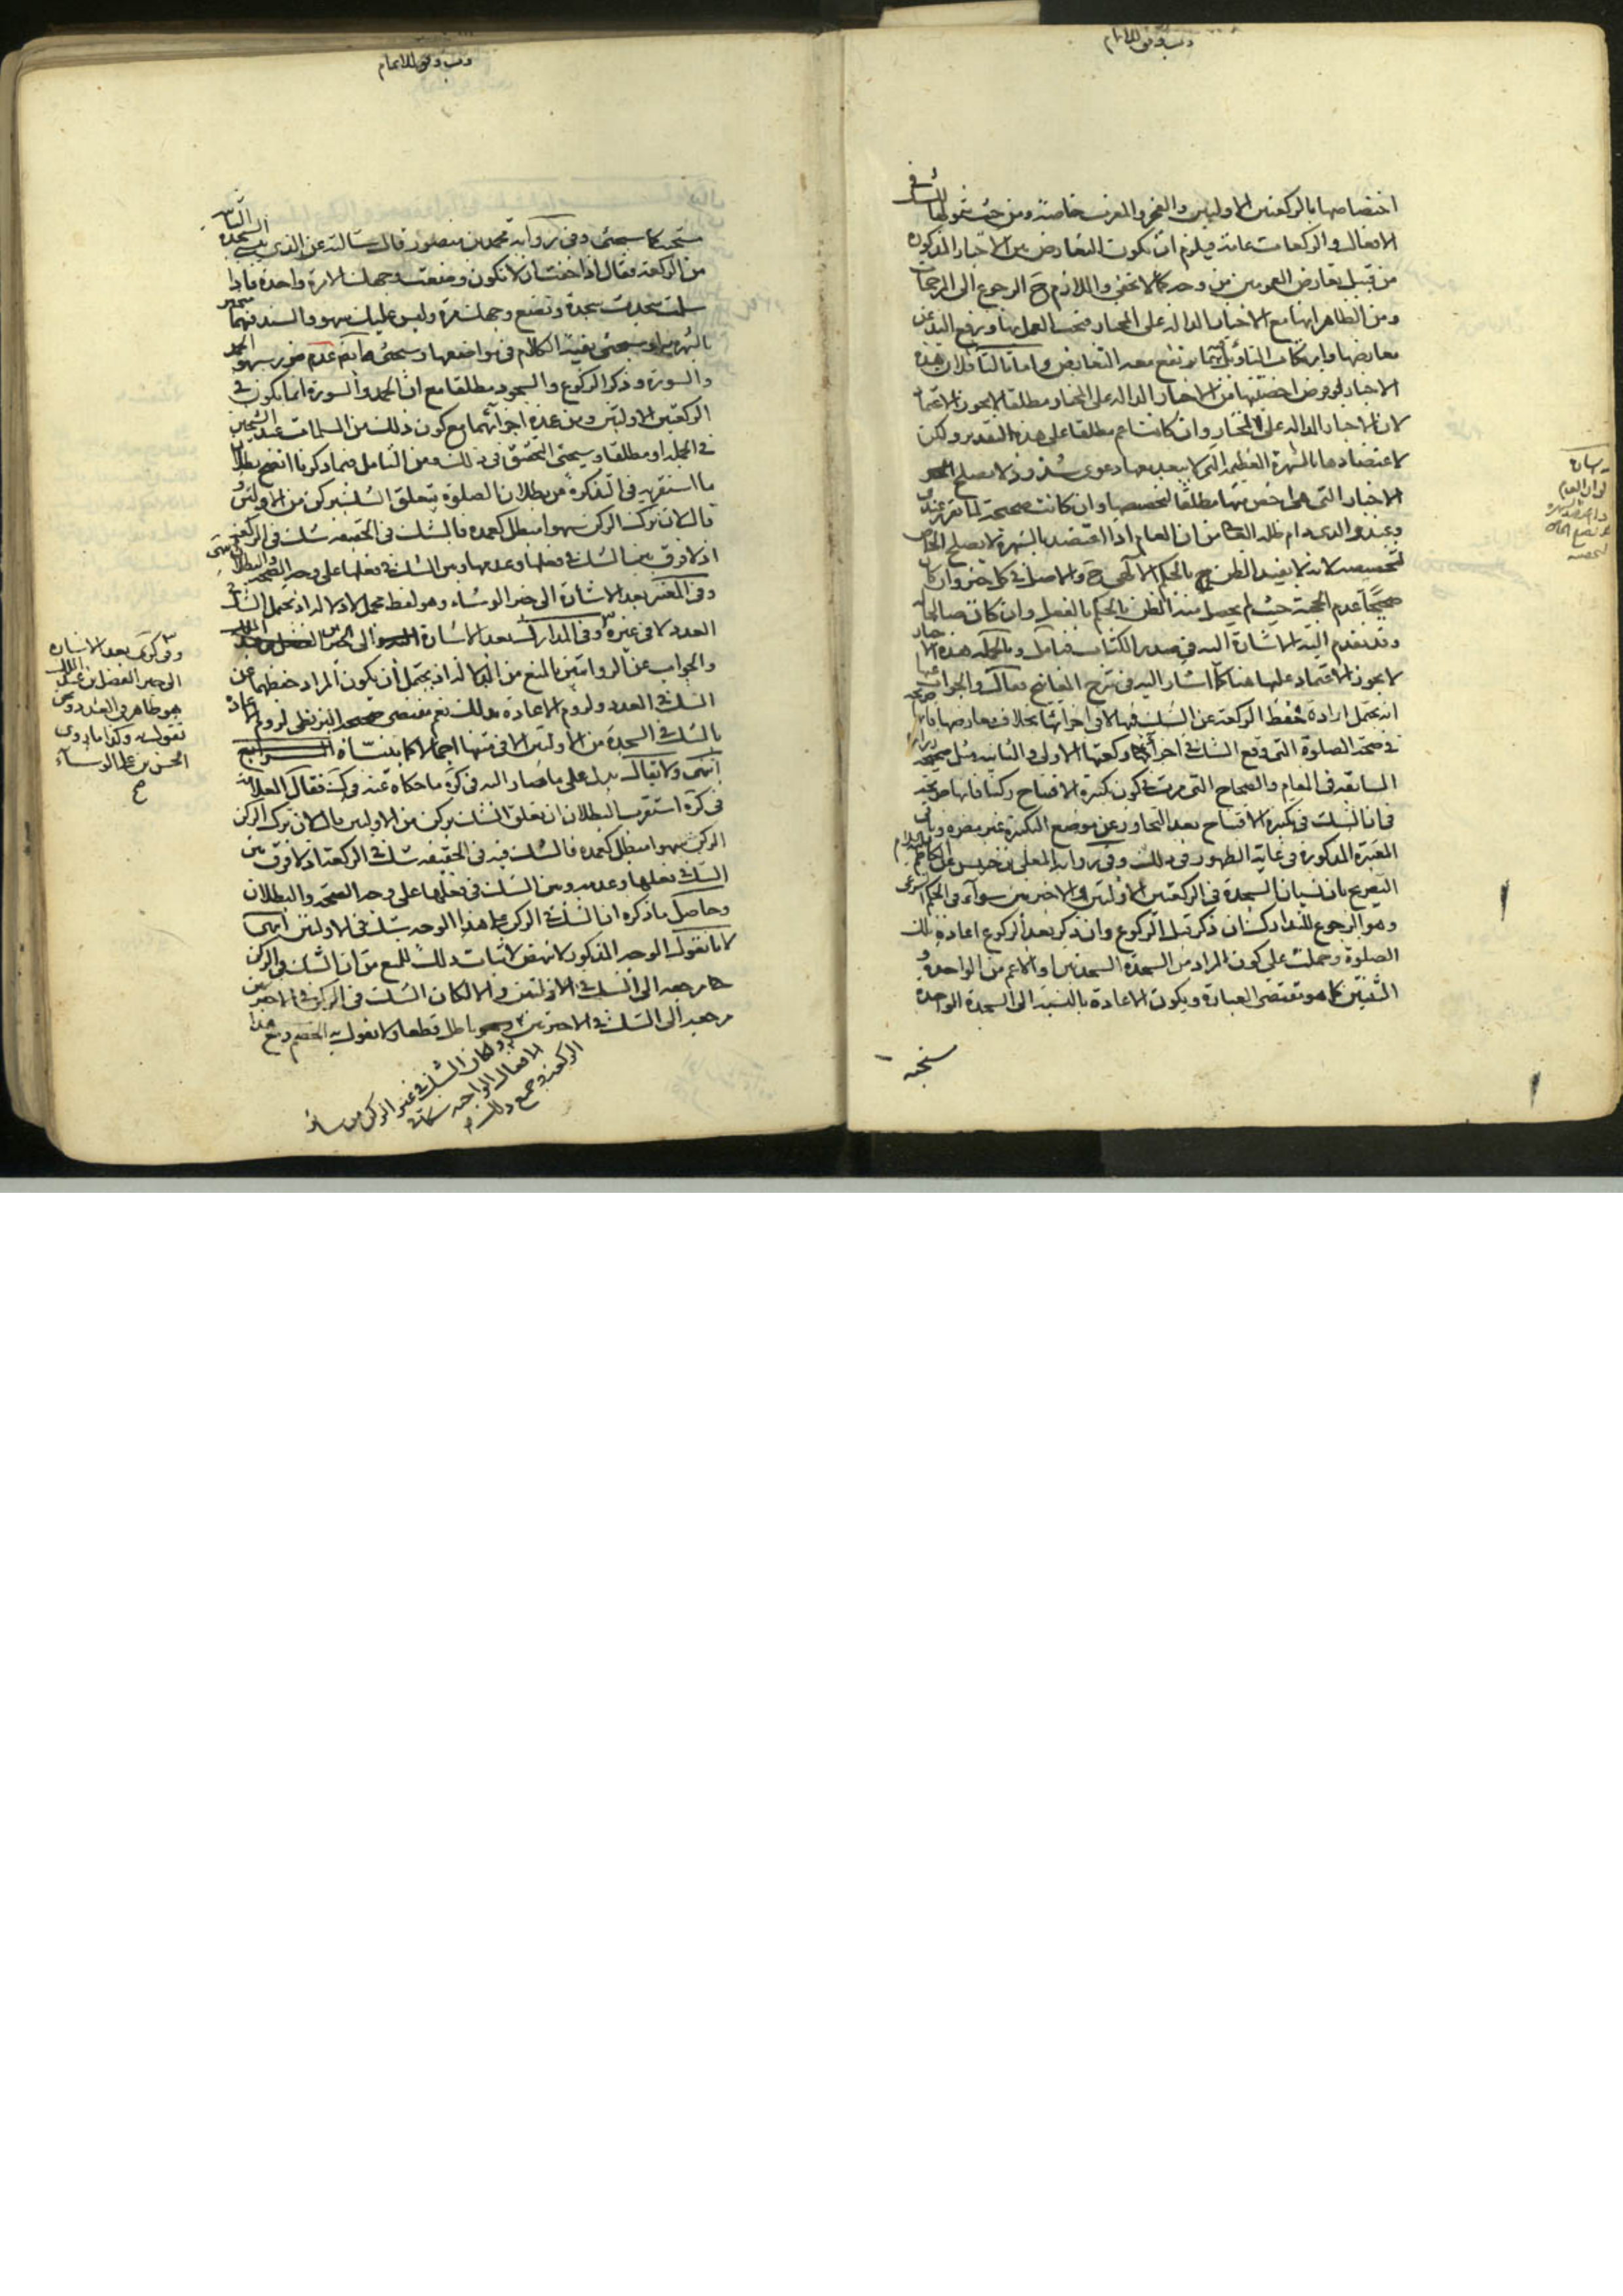 رب وفق للاتمام
اختصاصها بالركعتين الاوليين والفجر والمغرب خاصة ومن حيث شمولها للشك في
الافعال والركعات عامة فيلزم ان يكون التعارض بين الاخبار المذكورة
من قبيل تعارض العمومين من وجه كما لا يخفى واللازم ح الرجوع الى المرجحات
ومن الظاهر انها مع الاخبار الدالة على المختار فيجب العمل بها ويرفع اليد عن
معارضها وارتكاب التأويل بما يرتفع معه التعارض واما ثالثا فلان هذه
الاخبار لو فرض اخصيتها من الاخبار الدالة على المختار مطلقا لا يجوز الاعتماد
لان الاخبار الدالة على المختار وان كانت اعم مطلقا على هذا التقدير ولكن
لاعتضادها بالشهرة العظيمة التي لا يبعد معها دعوى شذوذ لا يصلح
الاخبار التي هي اخص منها مطلقا لتخصيصها وان كانت صحيحة لما تقرر عندى
وعند والدى دام ظله العالى من ان العام اذا اعتضد بالشهرة لا يصلح الخاص
لتخصيصه لانه لا يفيد الظن بالحكم الالهى ح والاصل في كل خبر وان كان
صحيحا عدم الحجية حيث لم يحصل منه الظن بالحكم بالفعل وان كان صالحا له
وقد تقدم اليه الاشارة اليه في صدر الكتاب فتأمل وبالجملة هذه الاخبار
لا يجوز الاعتماد عليها هنا كما اشار اليه في شرح المفاتيح فقال والجواب عنها
انه يحتمل ارادة حفظ الركعة عن الشك فيها لا في اجزائها بخلاف معارضها فانها صريحة
في صحة الصلوة التي وقع الشك في اجزاء ركعتها الاولى والثانية مثل صحيحة زرارة
السابقة في المقام والصحاح التي مرت في كون تكبيرة الافتتاح ركنا فانها صريحة
في ان الشك في تكبيرة الافتتاح بعد التجاوز عن موضع التكبيرة غير مضرة وباقي
المعتبرة المذكورة في غاية الظهور في ذلك وفي رواية المعلى بن خنيس عن الكاظم عليه السلام
التصريح بان نسيان السجدة في الركعتين الاولتين والاخيرتين سواء في الحكم الشرعي
وهو الرجوع للتدارك ان ذكر قبل الركوع وان ذكر بعد الركوع اعادة تلك
الصلوة وحملت على كون المراد من السجدة السجدتين او الاعم من الواحدة و
الثنتين كما هو مقتضى العبارة ويكون الاعادة بالنسبة الى السجدة الواحدة
مستحبة
رب وفق للاتمام
مستحبة كما سيجئ وفي رواية محمد بن منصور قال سألته عن الذى ينسى السجدة الثانية
من الركعة فقال اذا خفت ان لا تكون وضعت وجهك الا مرة واحدة فاذا
سلمت سجدت سجدة وتضع وجهك مرة وليس عليك سهو والسند فيهما منجبر
بالشهرة وسيجئ بقية الكلام في مواضعها وسيجئ ايضا عدم ضرر سهو الحمد
والسورة وذكر الركوع والسجود مطلقا مع ان الحمد والسورة انما يكون في
الركعتين الاولتين ومن عمدة اجزائهما مع كون ذلك من المسلمات عند الشيخين
في الجملة او مطلقا وسيجئ التحقيق في ذلك ومن التأمل فيما ذكرنا اتضح بطلان
ما استقربه في التذكرة من بطلان الصلوة بتعلق الشك بركن من الاولتين و
قال لان ترك الركن سهوا مبطل كعمده فالشك في الحقيقة شك في الركعة
اذ لا فرق بين الشك في فعلها وعدمها وبين الشك في فعلها على وجه الصحة والبطلان انتهى
وفي المعتبر بعد الاشارة الى خبر الوشاء وهو لفظ مجمل الدلالة اذ يحتمل الشك في
العدد لا في غيره وفي المدارك بعد الاشارة الى خبر الفضل بن عبد الملك
والجواب عن الروايتين بالمنع من الدلالة اذ يحتمل ان يكون المراد حفظهما عن
الشك في العدد ولزوم الاعادة بذلك نعم مقتضى صحيحة البزنطى لزوم الاعادة
بالشك في السجدة من الاولتين الا في متنها اجمالا كما بيناه
انتهى ولا يقال يدل على ما صار اليه في كره ما حكاه عنه في ك فقال العلامة
في كره استقرب البطلان ان تعلق الشك بركن من الاولتين قال لان ترك الركن
الركن سهوا مبطل كعمده فالشك فيه في الحقيقة شك في الركعة اذ لا فرق بين
الشك في فعلها وعدمه وبين الشك في فعلها على وجه الصحة والبطلان
وحاصل ما ذكره ان الشك في الركن على هذا الوجه شك في الاولتين انتهى
لانا نقول الوجه المذكور لا ينهض لاثبات ذلك للمنع من ان الشك في الركن
مرجعه الى الشك في الاولتين والا لكان الشك في الركن في الاخيرتين
مرجعه الى الشك في الاخيرتين وهو باطل قطعا ولا يقول به الخصم ومع هذا
لكان الشك في غير الركن من سائر
الافعال الواجبة شكا في
الركعة وجميع ذلك
وفي كره بعد الاشارة
الى خبر الفضل بن عبد الملك
هو ظاهر في العدد ونحن
نقول به وكذا ما روى
الحسن بن على الوشاء